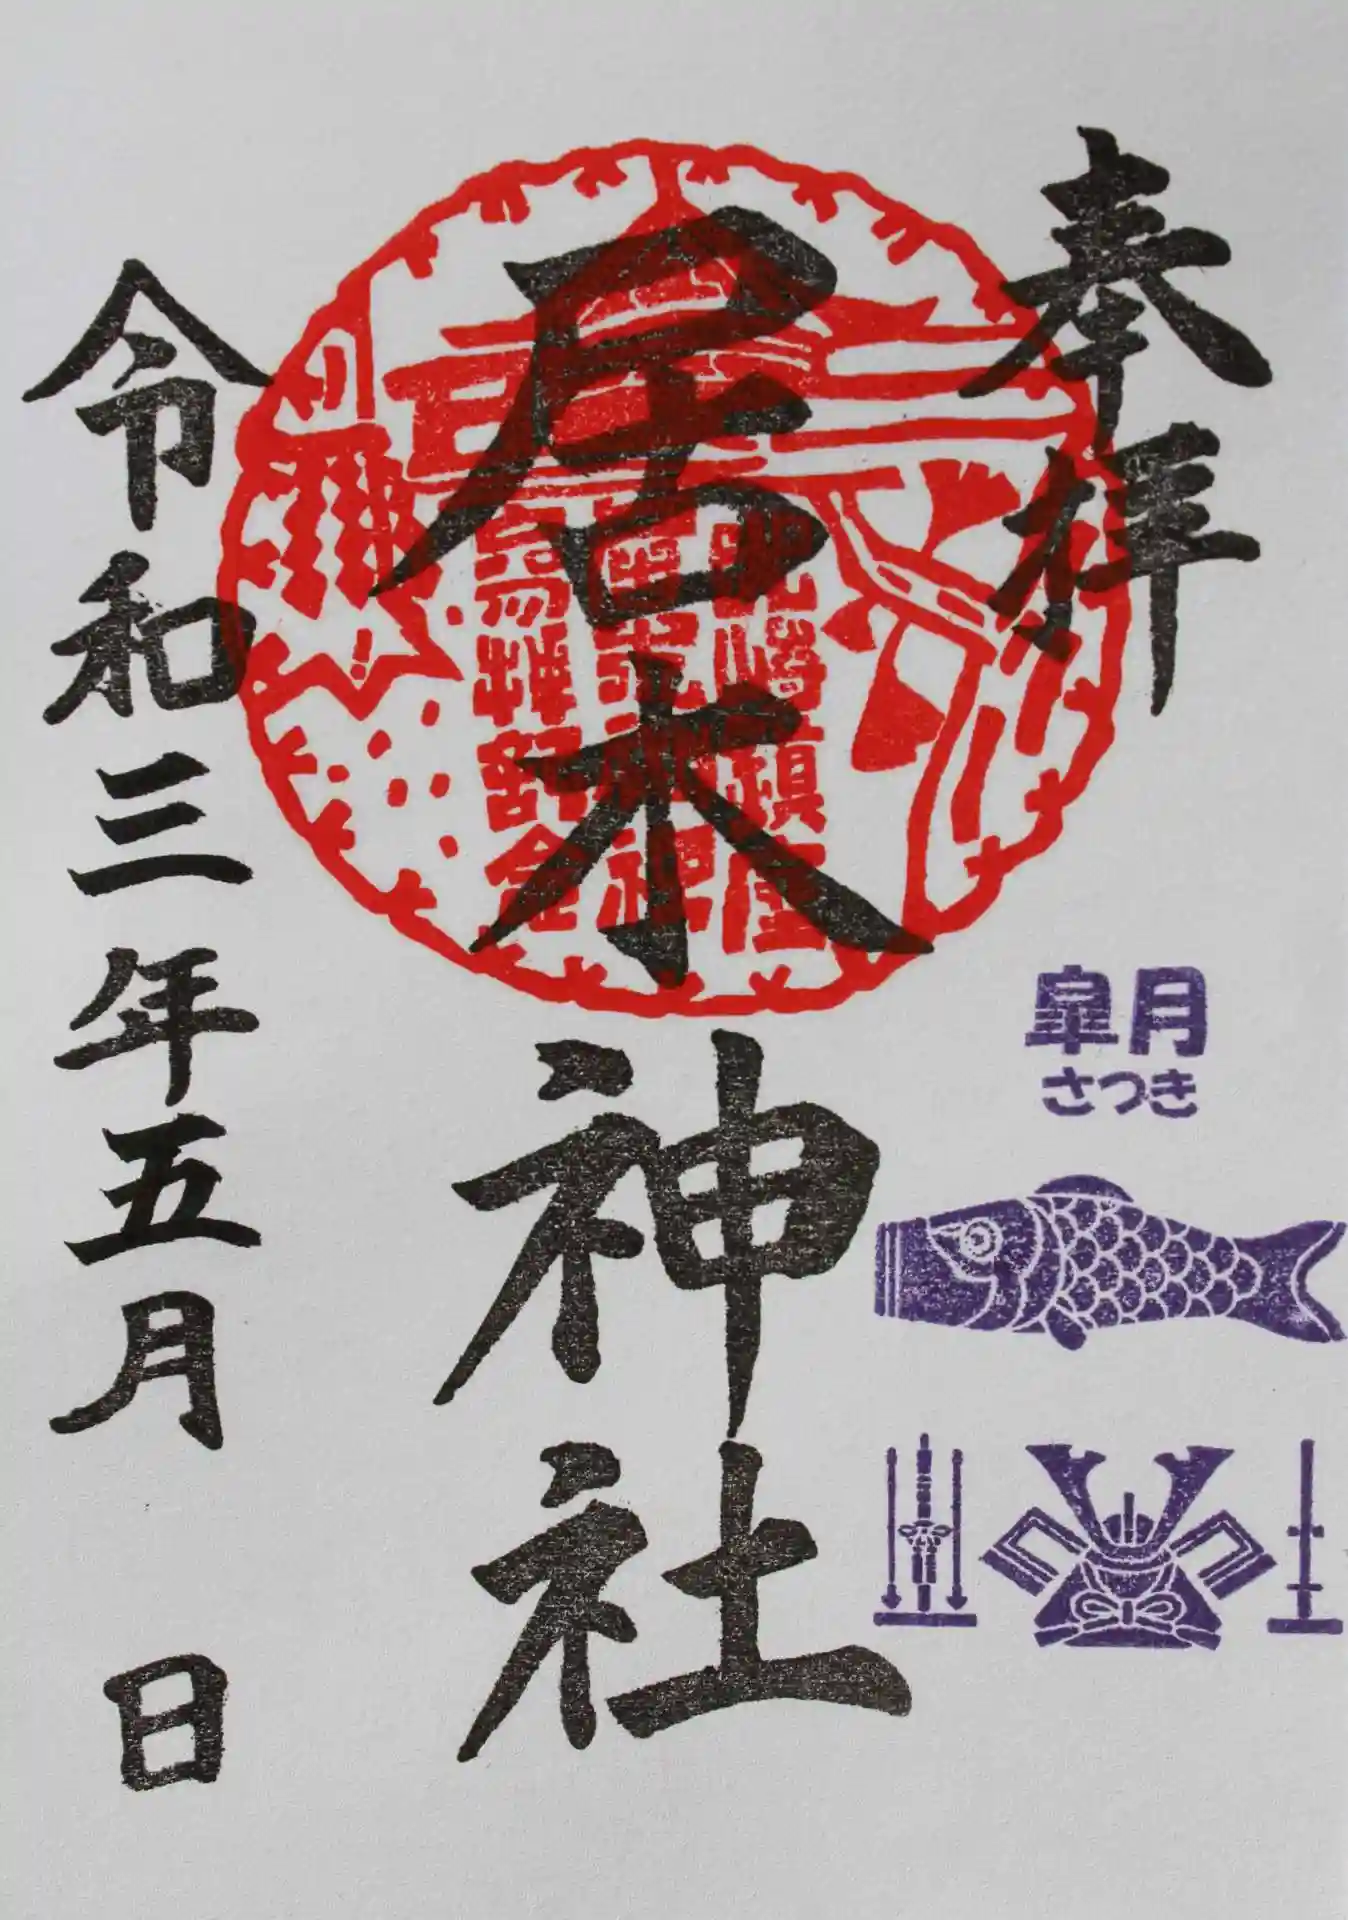 奉拝
居木神社
令和三年五月 日
皐月
さつき